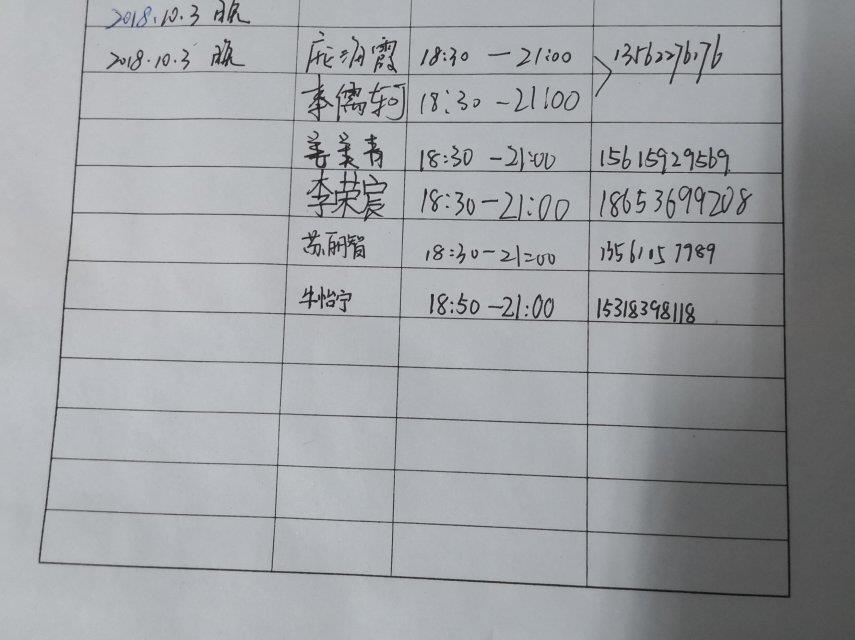 2018.10.3 晚
2018.10.3 晚 庞海霞 18:30 — 21:00 13562276176
李儒轲 18:30 - 21:00
姜美青 18:30 - 21:00 15615929569
李荣宸 18:30 - 21:00 18653699208
苏丽智 18:30 - 21:00 13561057989
牛怡宁 18:50 - 21:00 15318398118